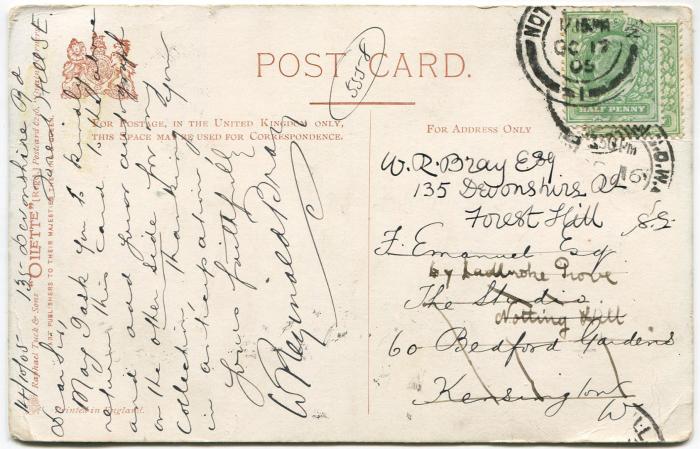 POST CARD.
FOR POSTAGE, IN THE UNITED KINGDOM ONLY,
THIS SPACE MAY BE USED FOR CORRESPONDENCE.
FOR ADDRESS ONLY
5558
14/10/05 135 Devonshire Rd
Forest Hill S.E.
Dear Sir
May I ask you to kindly
return this card
and and favor autograph
on the other side for my
collection. Thanking you
in anticipation
Yours faithfully
W Reginald Bray
Raphael Tuck & Sons "OILETTE" [Regd.] Postcard
ART PUBLISHERS TO THEIR MAJESTIES THE
Printed in England.
NOT
OC 17
05
1
HALF PENNY
W. R. Bray Esq
135 Devonshire Rd
Forest Hill S.E.
F. Emanuel Esq.
64 Ladbroke Grove
The Studio
Notting Hill
60 Bedford Gardens
Kensington
W